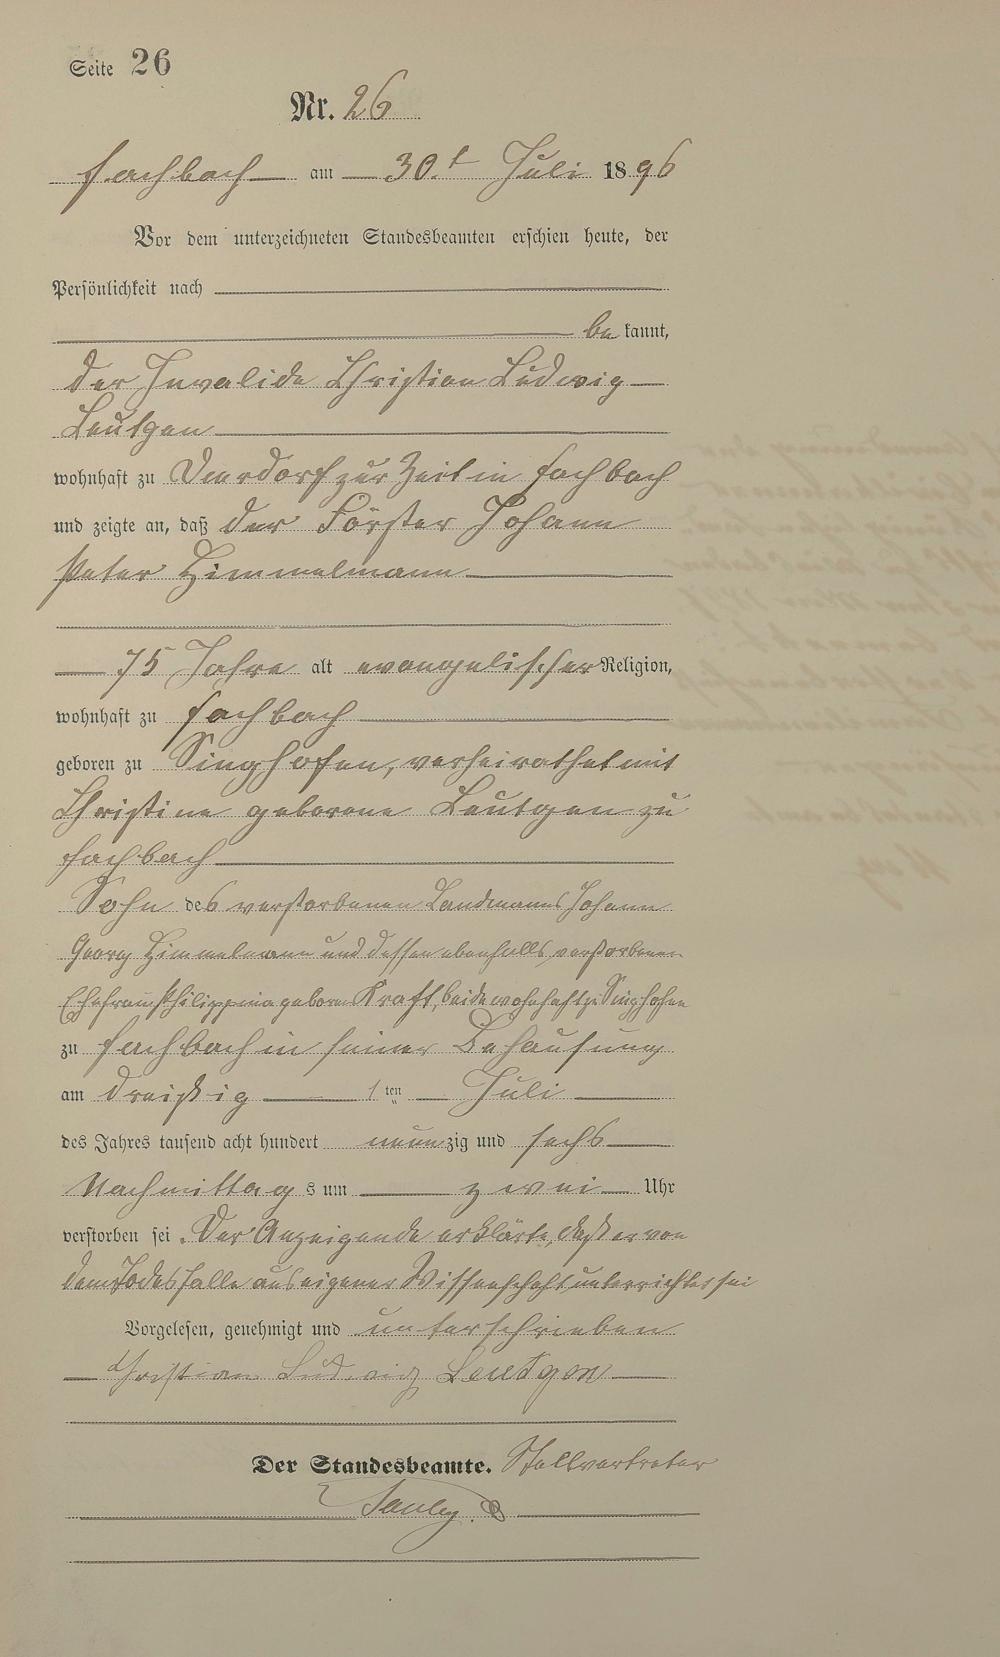 Seite 26
Nr. 26
Fachbach am 30.t Juli 1896
Vor dem unterzeichneten Standesbeamten erschien heute, der
Persönlichkeit nach
be kannt,
der Invalide Christian Ludwig
Leutgen
wohnhaft zu Dierdorf zur Zeit in Fachbach
und zeigte an, daß der Förster Johann
Peter Himmelmann
75 Jahre alt evangelischer Religion,
wohnhaft zu Fachbach
geboren zu Singhofen, verheirathet mit
Christine geborene Leutgen zu
Fachbach
Sohn des verstorbenen Landmanns Johann
Georg Himmelmann und dessen ebenfalls verstorbenen
Ehefrau Philippina geboren Kraft, beide wohnhaft zu Singhofen
zu Fachbach in seiner Behausung
am dreißig 1 ten Juli
des Jahres tausend acht hundert neun zig und sechs
Nachmittag s um zwei Uhr
verstorben sei. Der Anzeigende erklärte, daß er von
dem Todesfalle aus eigener Wissenschaft unterrichtet sei
Vorgelesen, genehmigt und unterschrieben
Christian Ludwig Leutgen
Der Standesbeamte. Stellvertreter